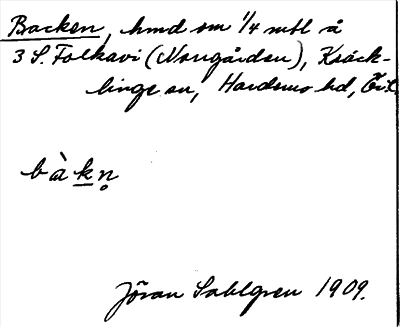 Backen, hmd om 1/4 mtl å
3 S. Folkavi (Norrgården), Kräck-
linge sn, Hardemo hd, Ör.l.
bàkn̥
Jöran Sahlgren 1909.